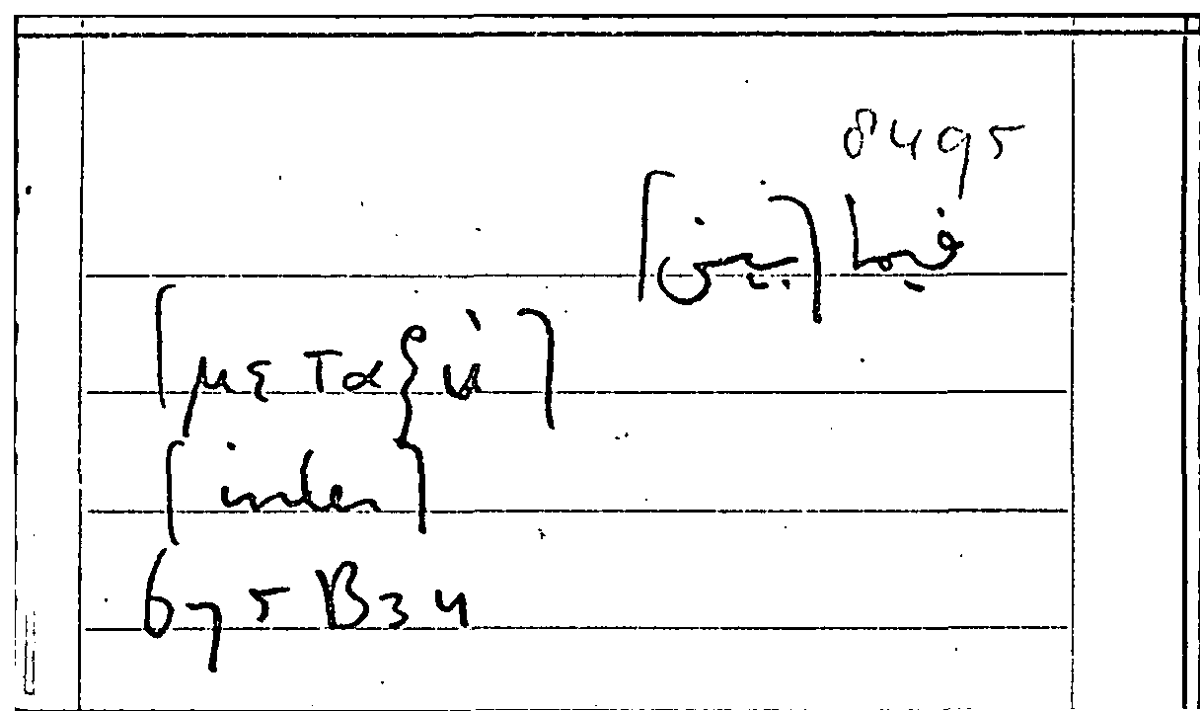 8495
فيما [بين]
[μεταξὺ]
[inter]
675B34